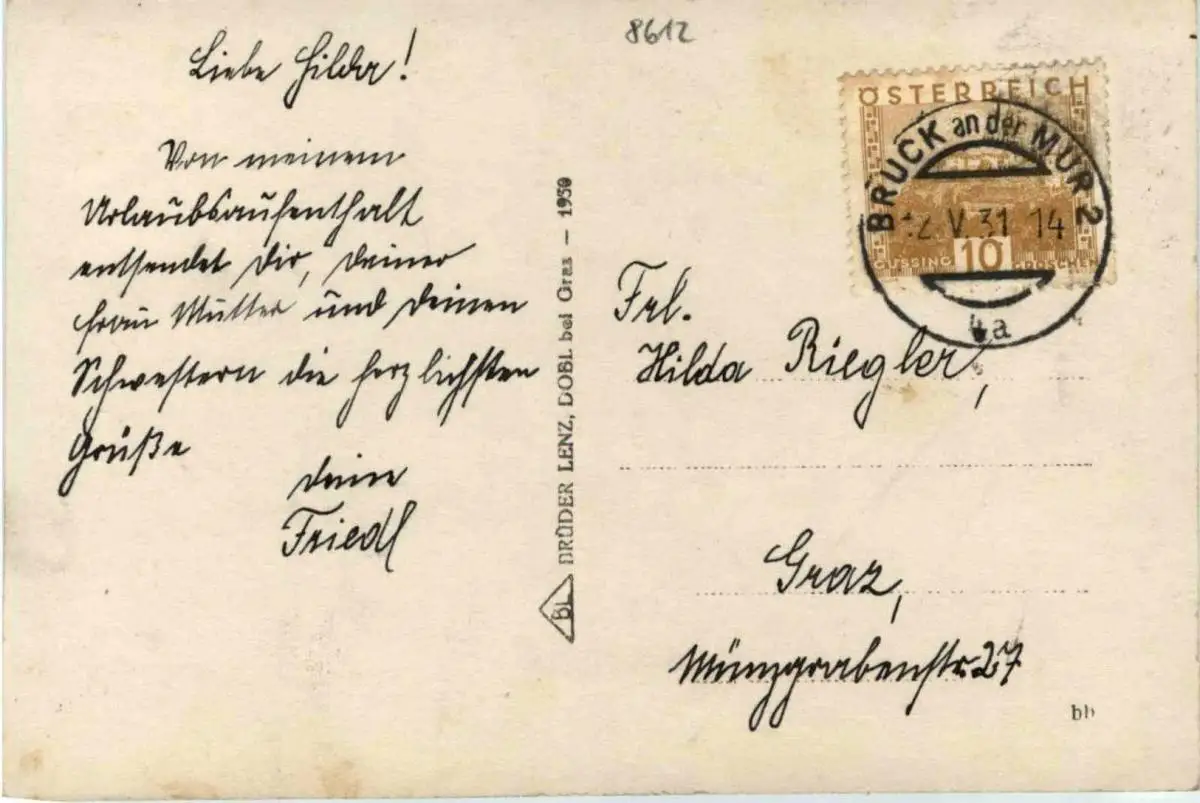 8612
Liebe Hilda!
Von meinem
Urlaubsaufenthalt
entsendet Dir, Deiner
Frau Mutter und Deinen
Schwestern die herzlichsten
Grüße
Deine
Friedl
BL BRÜDER LENZ, DOBL bei Graz – 1930
ÖSTERREICH
GÜSSING 10 GROSCHEN
BRUCK an der MUR 2
12. V. 31 14
4a
Frl.
Hilda Riegler,
Graz,
Münzgrabenstr. 27
bb